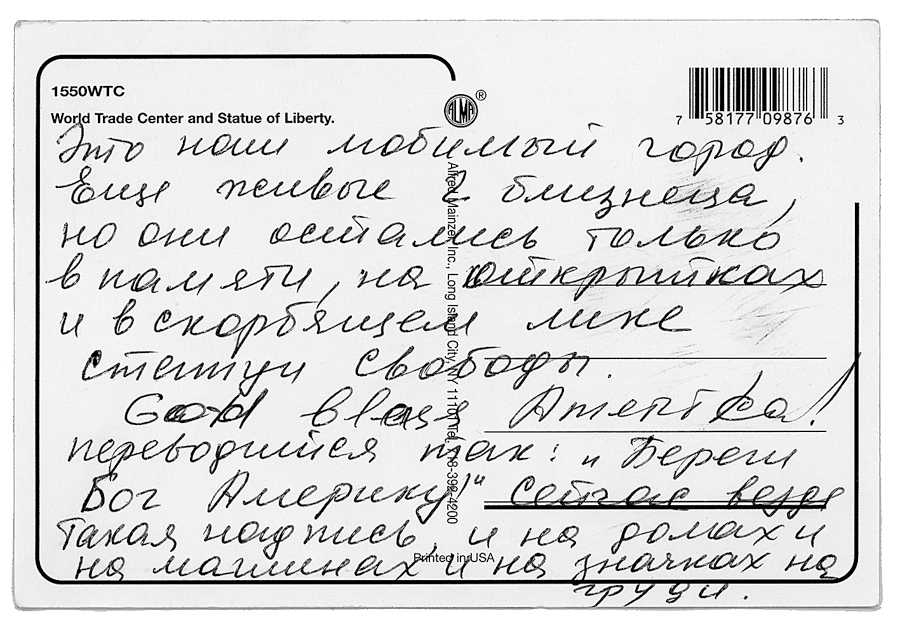 1550WTC
World Trade Center and Statue of Liberty.
ALMA ®
7 58177 09876 3
Это наш любимый город.
Еще живые 2 близнеца,
но они остались только
в памяти, на открытках
и в скорбящем лике
статуи свободы.
God bless America!
переводится так: "Береги
Бог Америку!" Сейчас везде
такая надпись, и на домах и
на машинах и на значках на
груди.
Alfred Mainzer, Inc., Long Island City, NY 11101 Tel. 718-392-4200
Printed in USA